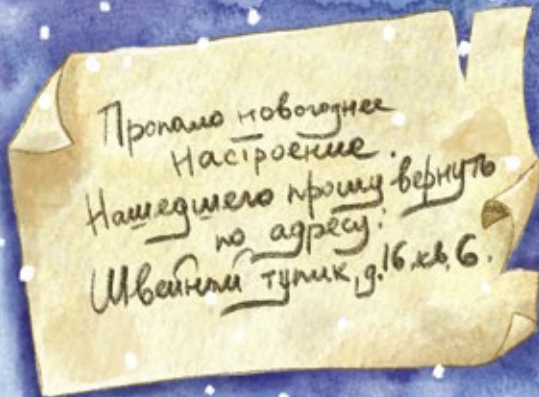 Пропало новогоднее
настроение.
Нашедшего прошу вернуть
по адресу:
Швейный тупик, д.16, кв. 6.